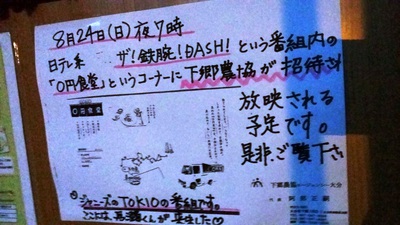 8月24日(日)夜7時
日テレ系 ザ!鉄腕!DASH!という番組内の
「0円食堂」というコーナーに下郷農協が招待され
放映される
予定です。
是非、ご覧下さい
0円食堂
ジャニーズのTOKIOの番組です。
ここには、長瀬くんが来ました♡